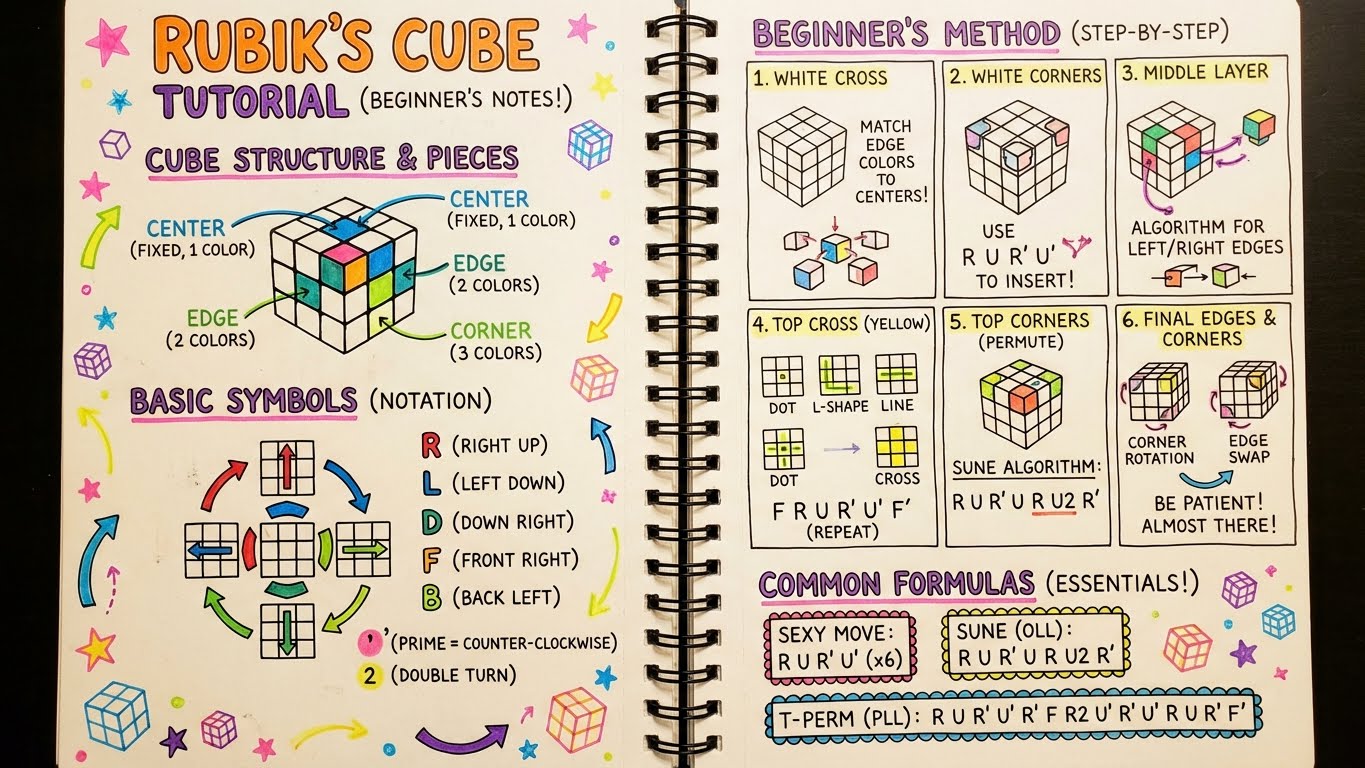 RUBIK'S CUBE
TUTORIAL (BEGINNER'S NOTES!)
CUBE STRUCTURE & PIECES
CENTER
(FIXED, 1 COLOR)
CENTER
(FIXED, 1 COLOR)
EDGE
(2 COLORS)
EDGE
(2 COLORS)
CORNER
(3 COLORS)
BASIC SYMBOLS (NOTATION)
R (RIGHT UP)
L (LEFT DOWN)
D (DOWN RIGHT)
F (FRONT RIGHT)
B (BACK LEFT)
' ' (PRIME = COUNTER-CLOCKWISE)
2 (DOUBLE TURN)
BEGINNER'S METHOD (STEP-BY-STEP)
1. WHITE CROSS
MATCH
EDGE
COLORS
TO
CENTERS!
2. WHITE CORNERS
USE
R U R' U'
TO INSERT!
3. MIDDLE LAYER
ALGORITHM FOR
LEFT/RIGHT EDGES
4. TOP CROSS (YELLOW)
DOT L-SHAPE LINE
DOT CROSS
F R U R' U' F'
(REPEAT)
5. TOP CORNERS
(PERMUTE)
SUNE ALGORITHM:
R U R' U R U2 R'
6. FINAL EDGES &
CORNERS
CORNER
ROTATION
EDGE
SWAP
BE PATIENT!
ALMOST THERE!
COMMON FORMULAS (ESSENTIALS!)
SEXY MOVE:
R U R' U' (x6)
SUNE (OLL):
R U R' U R U2 R'
T-PERM (PLL): R U R' U' R' F R2 U' R' U' R U R' F'